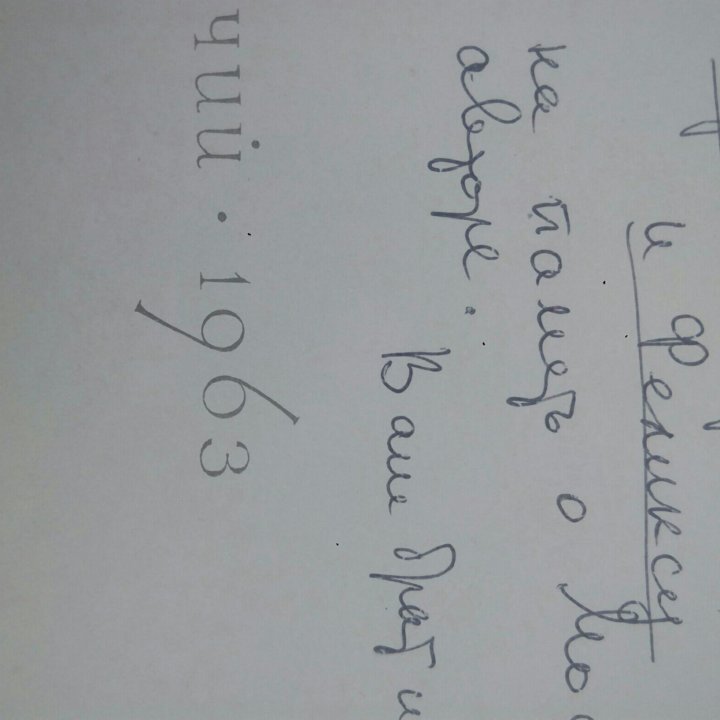 и Феликсу
на память о Мо
авторе.
Ваш брат и
чий · 1963